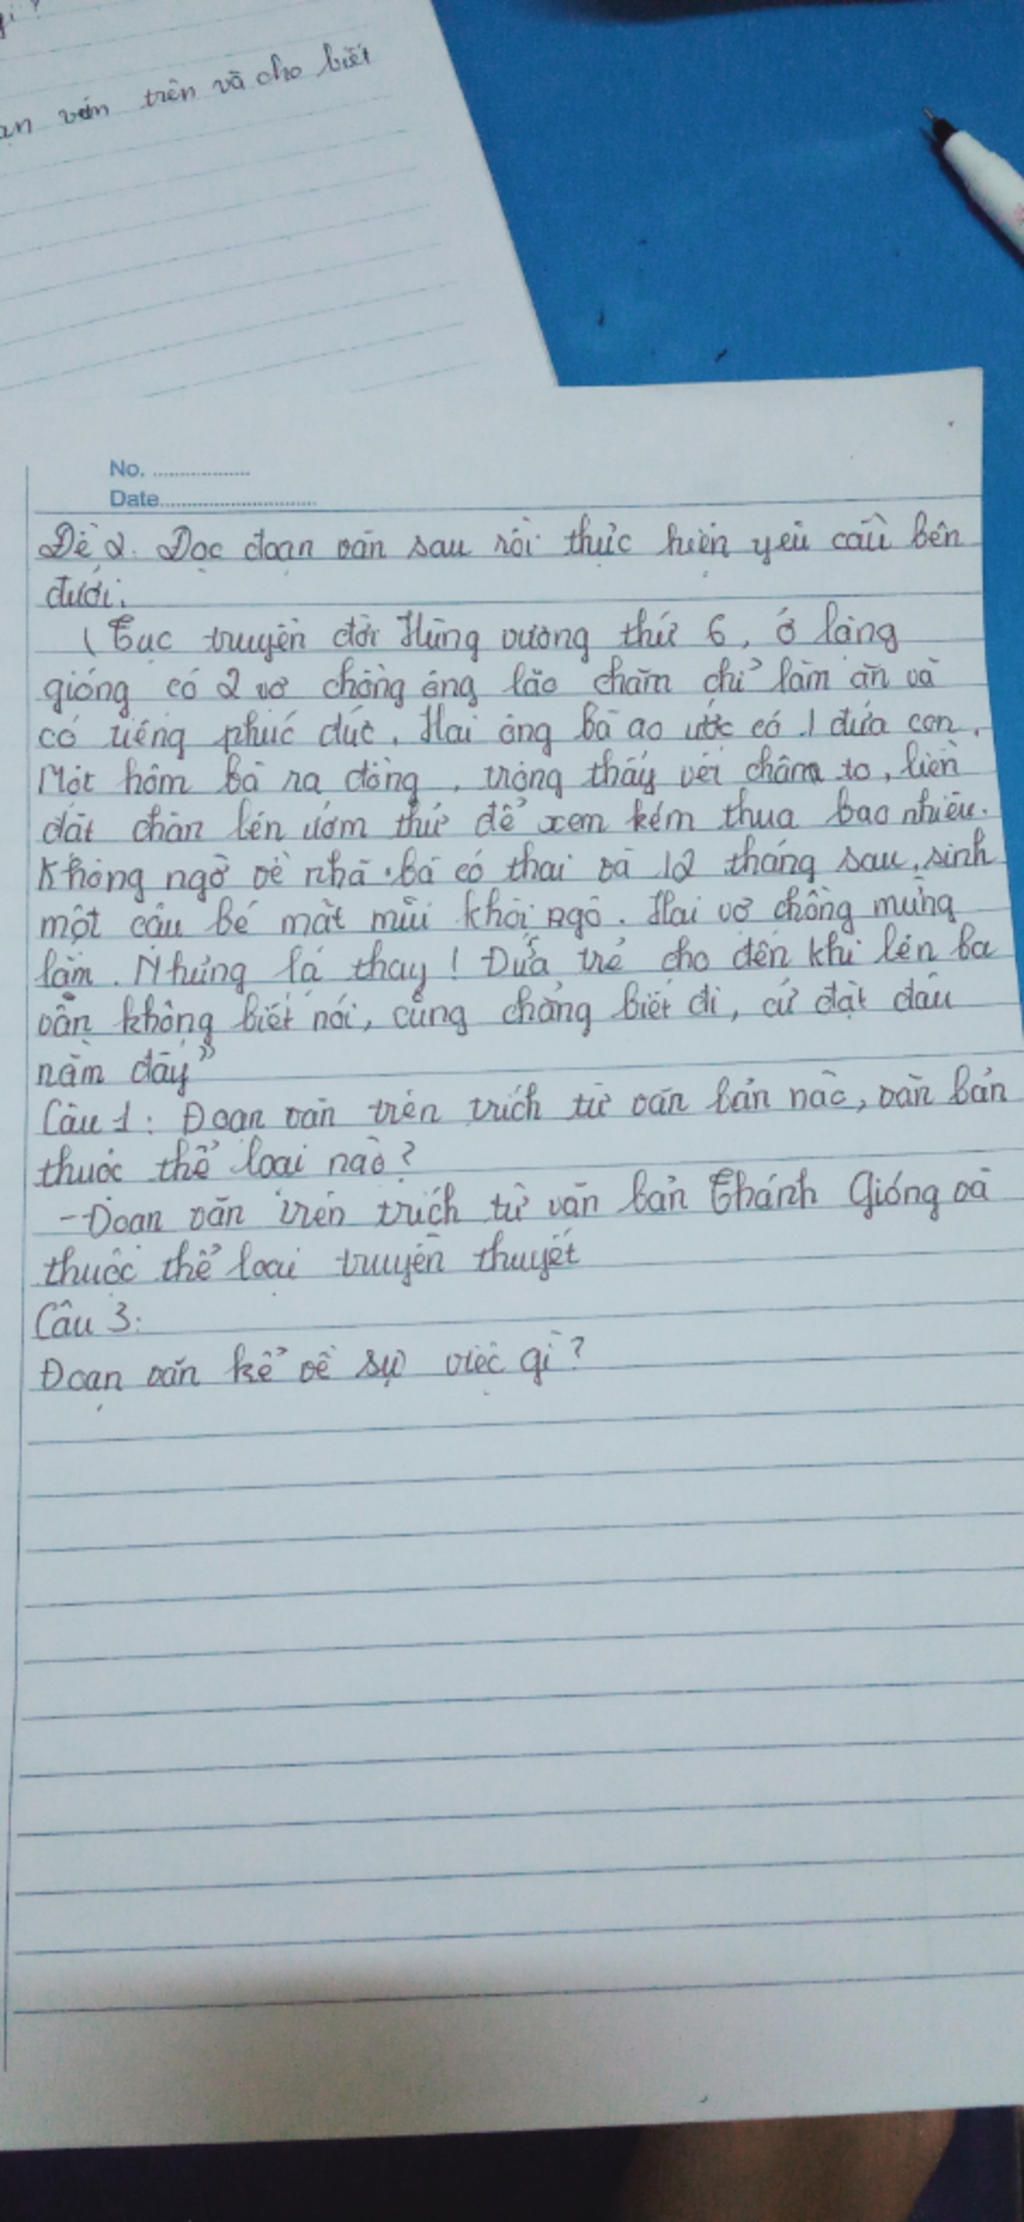 ạn văn trên và cho biết
No.
Date
Đề 2. Đọc đoạn văn sau rồi thực hiện yêu cầu bên
dưới.
(Tục truyền đời Hùng vương thứ 6, ở làng
gióng có 2 vợ chồng ông lão chăm chỉ làm ăn và
có tiếng phúc đức. Hai ông bà ao ước có 1 đứa con.
Một hôm bà ra đồng, trông thấy vết chân to, liền
đặt chân lên ướm thử để xem kém thua bao nhiêu.
Không ngờ về nhà bà có thai và 12 tháng sau, sinh
một cậu bé mặt mũi khôi ngô. Hai vợ chồng mừng
lắm. Nhưng lạ thay! Đứa trẻ cho đến khi lên ba
vẫn không biết nói, cũng chẳng biết đi, cứ đặt đâu
nằm đấy"
Câu 1: Đoạn văn trên trích từ văn bản nào, văn bản
thuộc thể loại nào?
-Đoạn văn trên trích từ văn bản Thánh Gióng và
thuộc thể loại truyền thuyết
Câu 3:
Đoạn văn kể về sự việc gì?